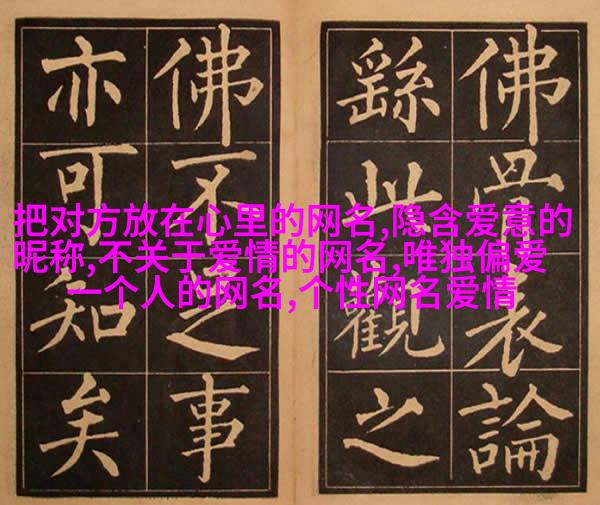 佛骨表論
繇此觀之
佛不足事
亦可知矣
把对方放在心里的网名,隐含爱意的
昵称,不关于爱情的网名,唯独偏爱
一个人的网名,个性网名爱情